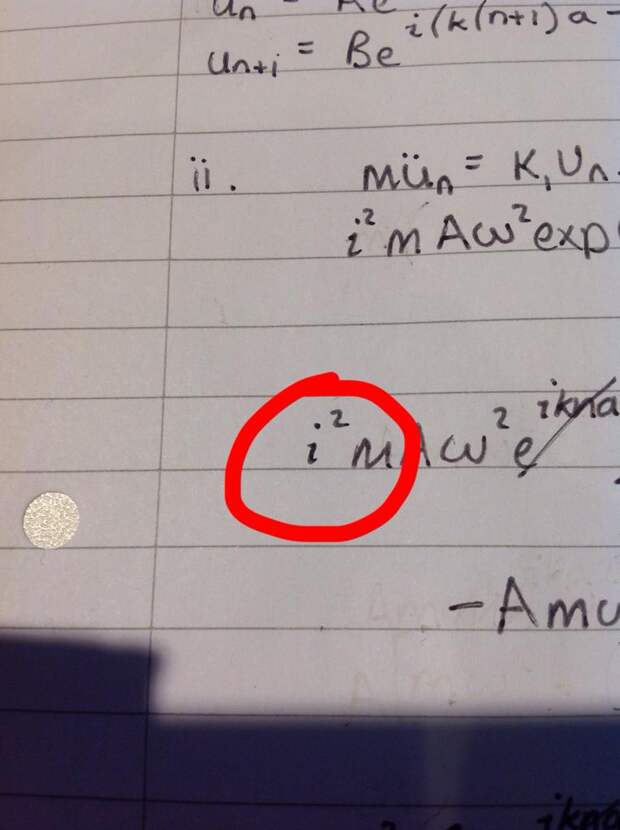 uₙ = Ae
uₙ₊₁ = Be^i(k(n+1)a-
ii. müₙ = K₁Uₙ
i²mAω²exp(
i²mAω²e^ikna
-Amω
ikna